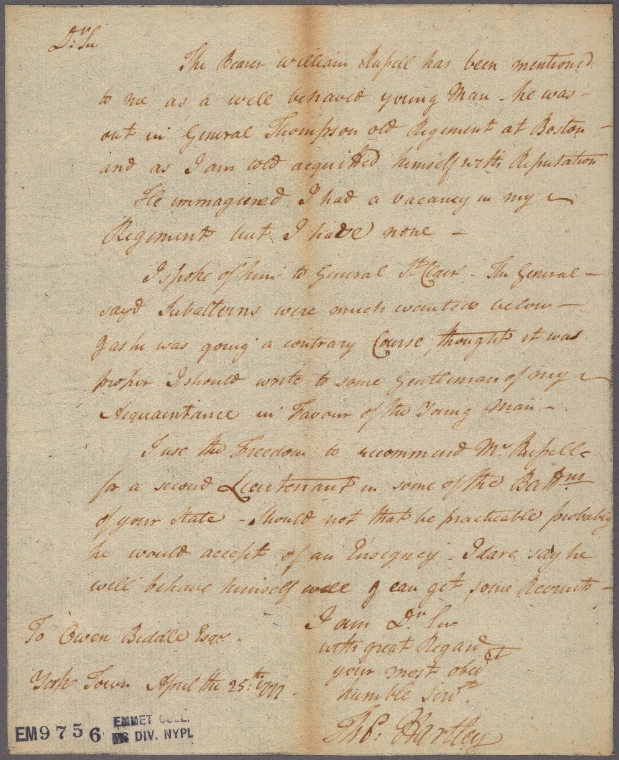 Dr. Sir
The Bearer William Russell has been mentioned
to me as a well behaved young Man - he was -
out in General Thompson old Regement at Boston -
and as I am told acquitted himself with Reputation
He immagiened I had a vacancy in my
Regiment but I have none -
I spoke of him to General St. Clair - The General -
sayd Subalterns were much wanted below -
& as he was going a contrary Course, thought it was
proper I should write to some Gentleman of my
Acquaintance in Favour of the Young Man -
I use the Freedom to recommend Mr. Russell
for a second Lieutenant in some of the Battns
of your State - should not that be practicable probably
he would accept of an Ensigncy - I dare say he
will behave himself well & can get some Recruits -
I am Dr. Sir
with great Regard
your most obedt
humble Servt.
Thos. Hartley
To Owen Biddle Esqr.
York Town April the 25th. 1777.
EM9756
EMMET COLL.
MS DIV. NYPL